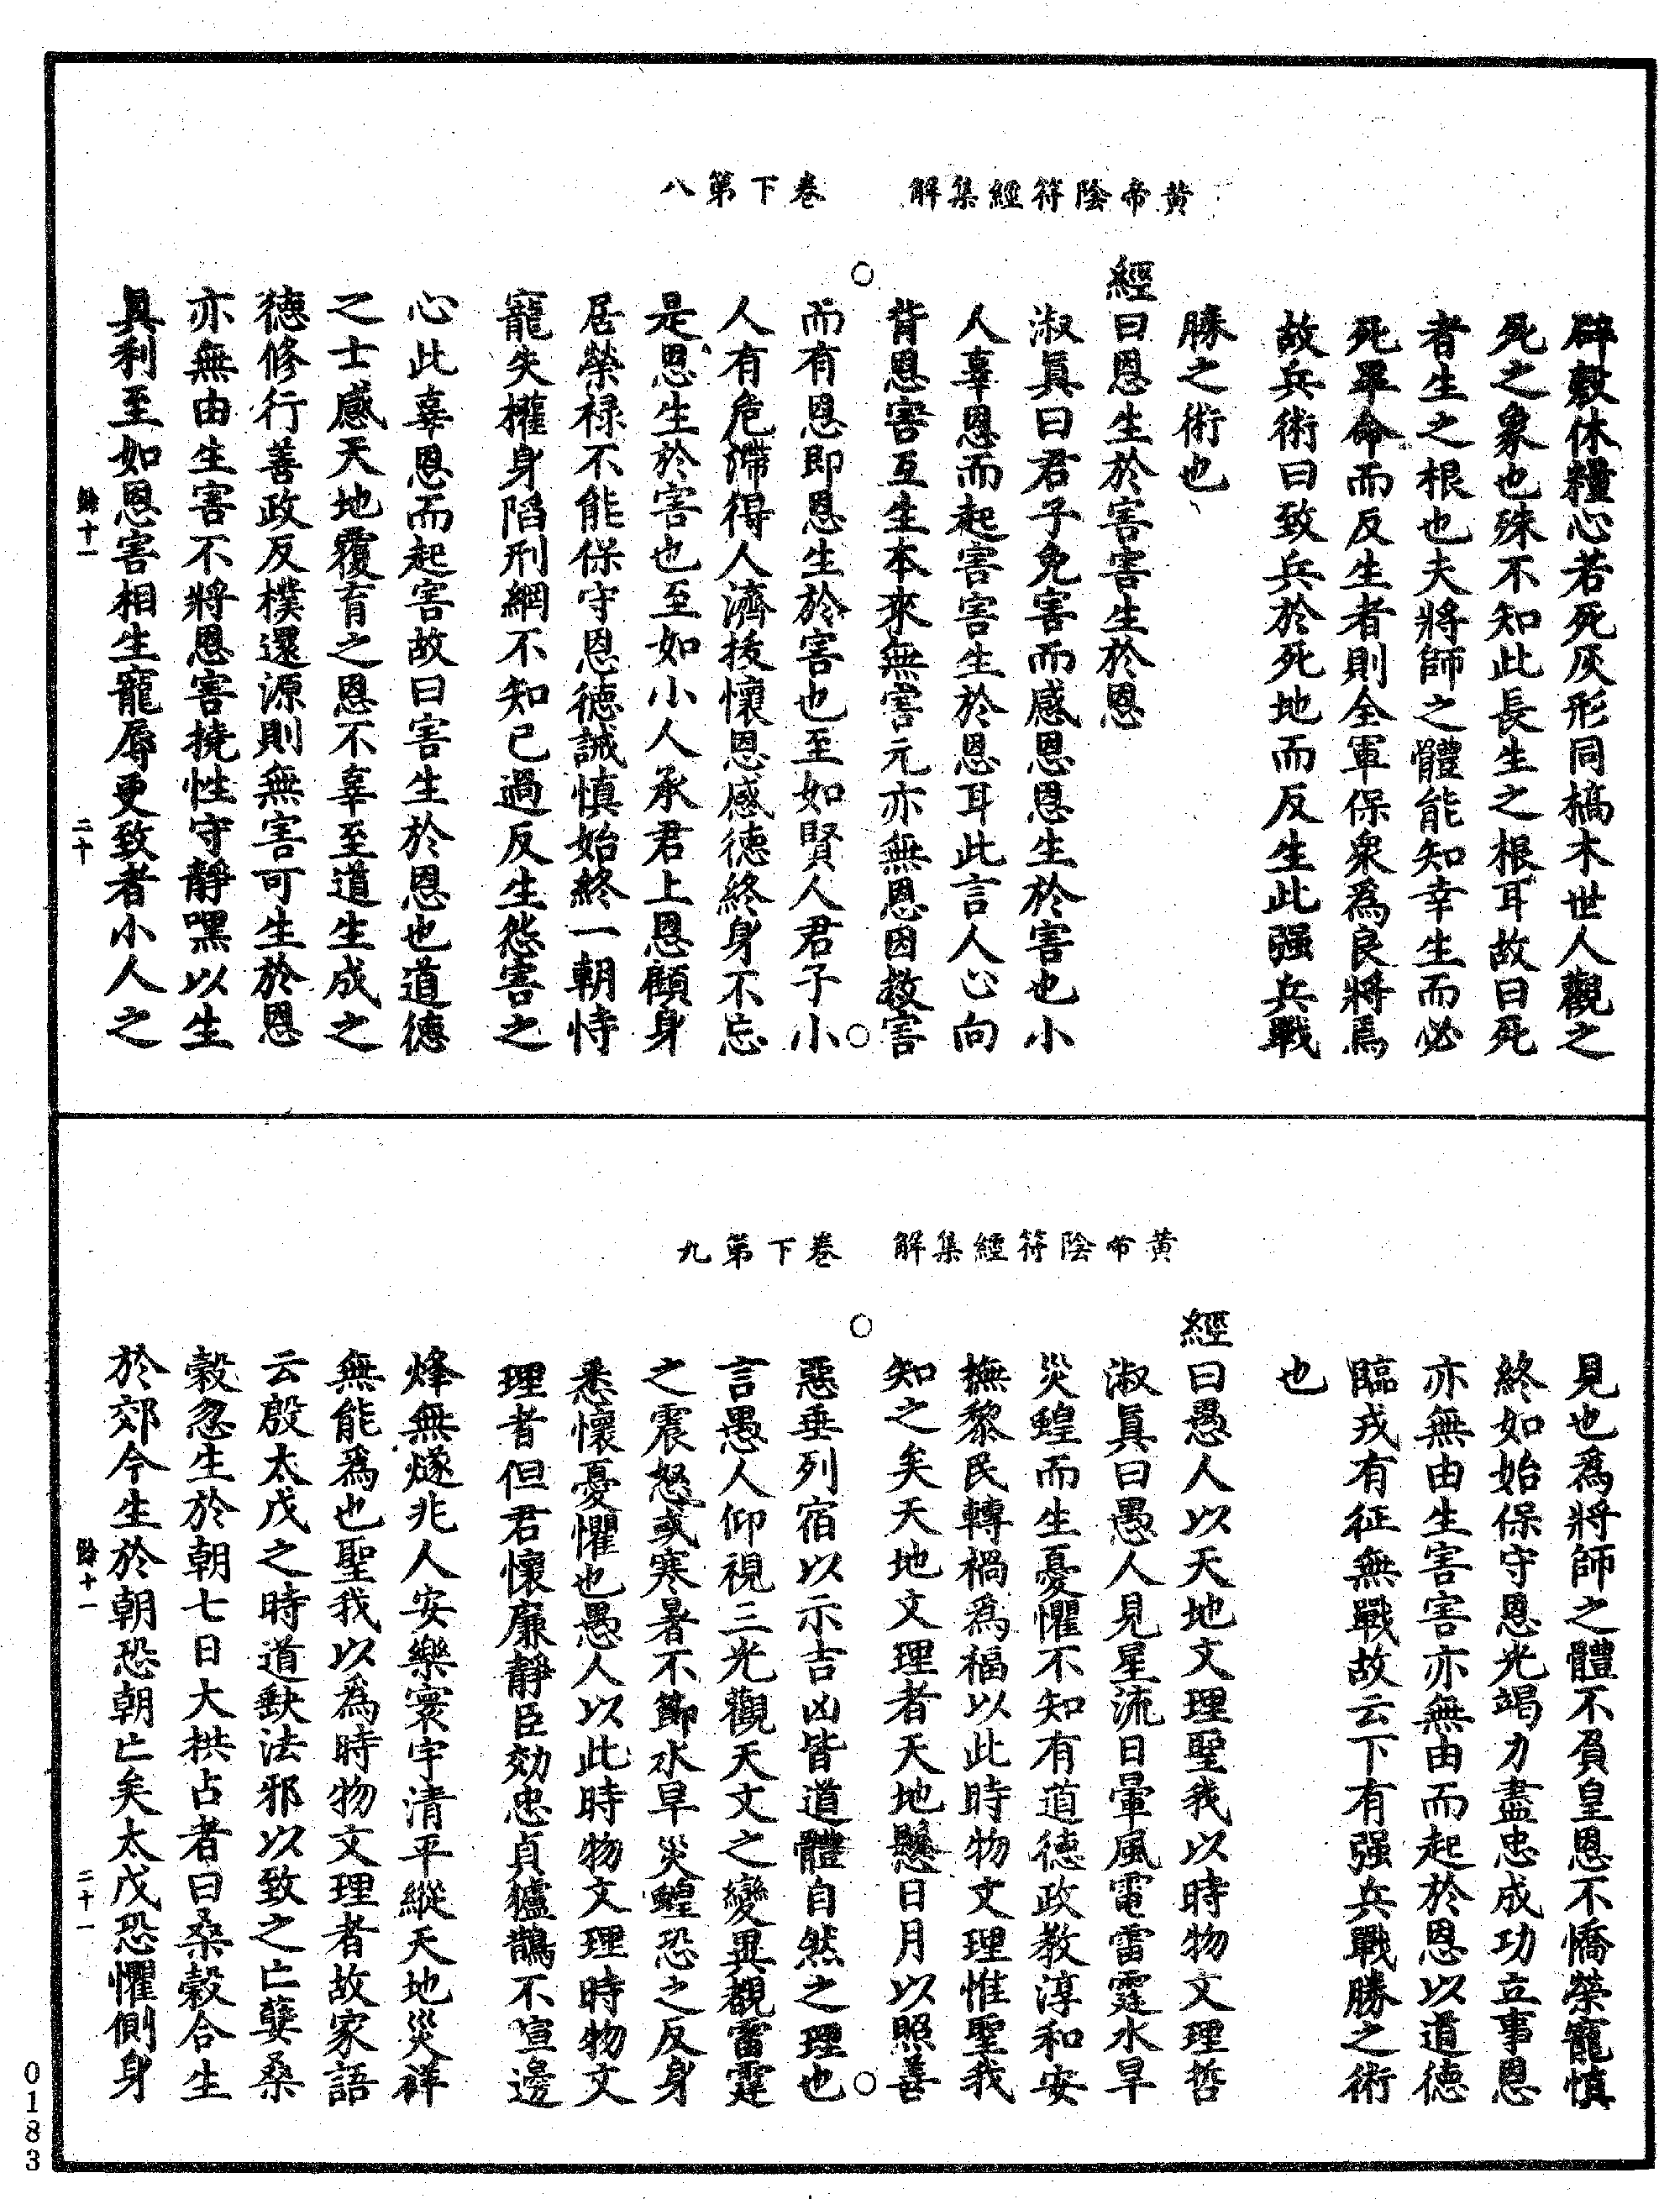 黃帝陰符經集解　卷下第八
辟穀休糧心若死灰形同槁木世人觀之
死之象也殊不知此長生之根耳故曰死
者生之根也夫將師之體能知幸生而必
死單命而反生者則全軍保衆爲良將焉
故兵術曰致兵於死地而反生此强兵戰
勝之術也
經曰恩生於害害生於恩
淑眞曰君子免害而感恩恩生於害也小
人辜恩而起害害生於恩耳此言人心向
背恩害互生本來無害元亦無恩因救害
而有恩即恩生於害也至如賢人君子小
人有危滯得人濟拔懷恩感德終身不忘
是恩生於害也至如小人承君上恩顧身
居榮禄不能保守恩德誠慎始終一朝恃
寵失權身陷刑網不知已過反生怨害之
心此辜恩而起害故曰害生於恩也道德
之士感天地覆育之恩不辜至道生成之
德修行善政反樸還源則無害可生於恩
亦無由生害不將恩害撓性守靜嘿以生
眞利至如恩害相生寵辱更致者小人之
餘十一
二十
黃帝陰符經集解　卷下第九
見也爲將師之體不負皇恩不憍榮寵慎
終如始保守恩光竭力盡忠成功立事恩
亦無由生害害亦無由而起於恩以道德
臨戎有征無戰故云下有强兵戰勝之術
也
經曰愚人以天地文理聖我以時物文理哲
淑眞曰愚人見星流日暈風電雷霆水旱
災蝗而生憂懼不知有道德政教淳和安
撫黎民轉禍爲福以此時物文理惟聖我
知之矣天地文理者天地懸日月以照善
惡垂列宿以示吉凶皆道體自然之理也
言愚人仰視三光觀天文之變異覩雷霆
之震怒或寒暑不節水旱災蝗恐之反身
悉懷憂懼也愚人以此時物文理時物文
理者但君懷廉靜臣効忠貞獹鵲不喧邊
烽無燧兆人安樂寰宇清平縱天地災祥
無能爲也聖我以為時物文理者故家語
云殷太戊之時道缺法邪以致之亡孽桑
穀忽生於朝七日大拱占者曰桑穀合生
於郊今生於朝恐朝亡矣太戊恐懼側身
餘十一
二十一
0183